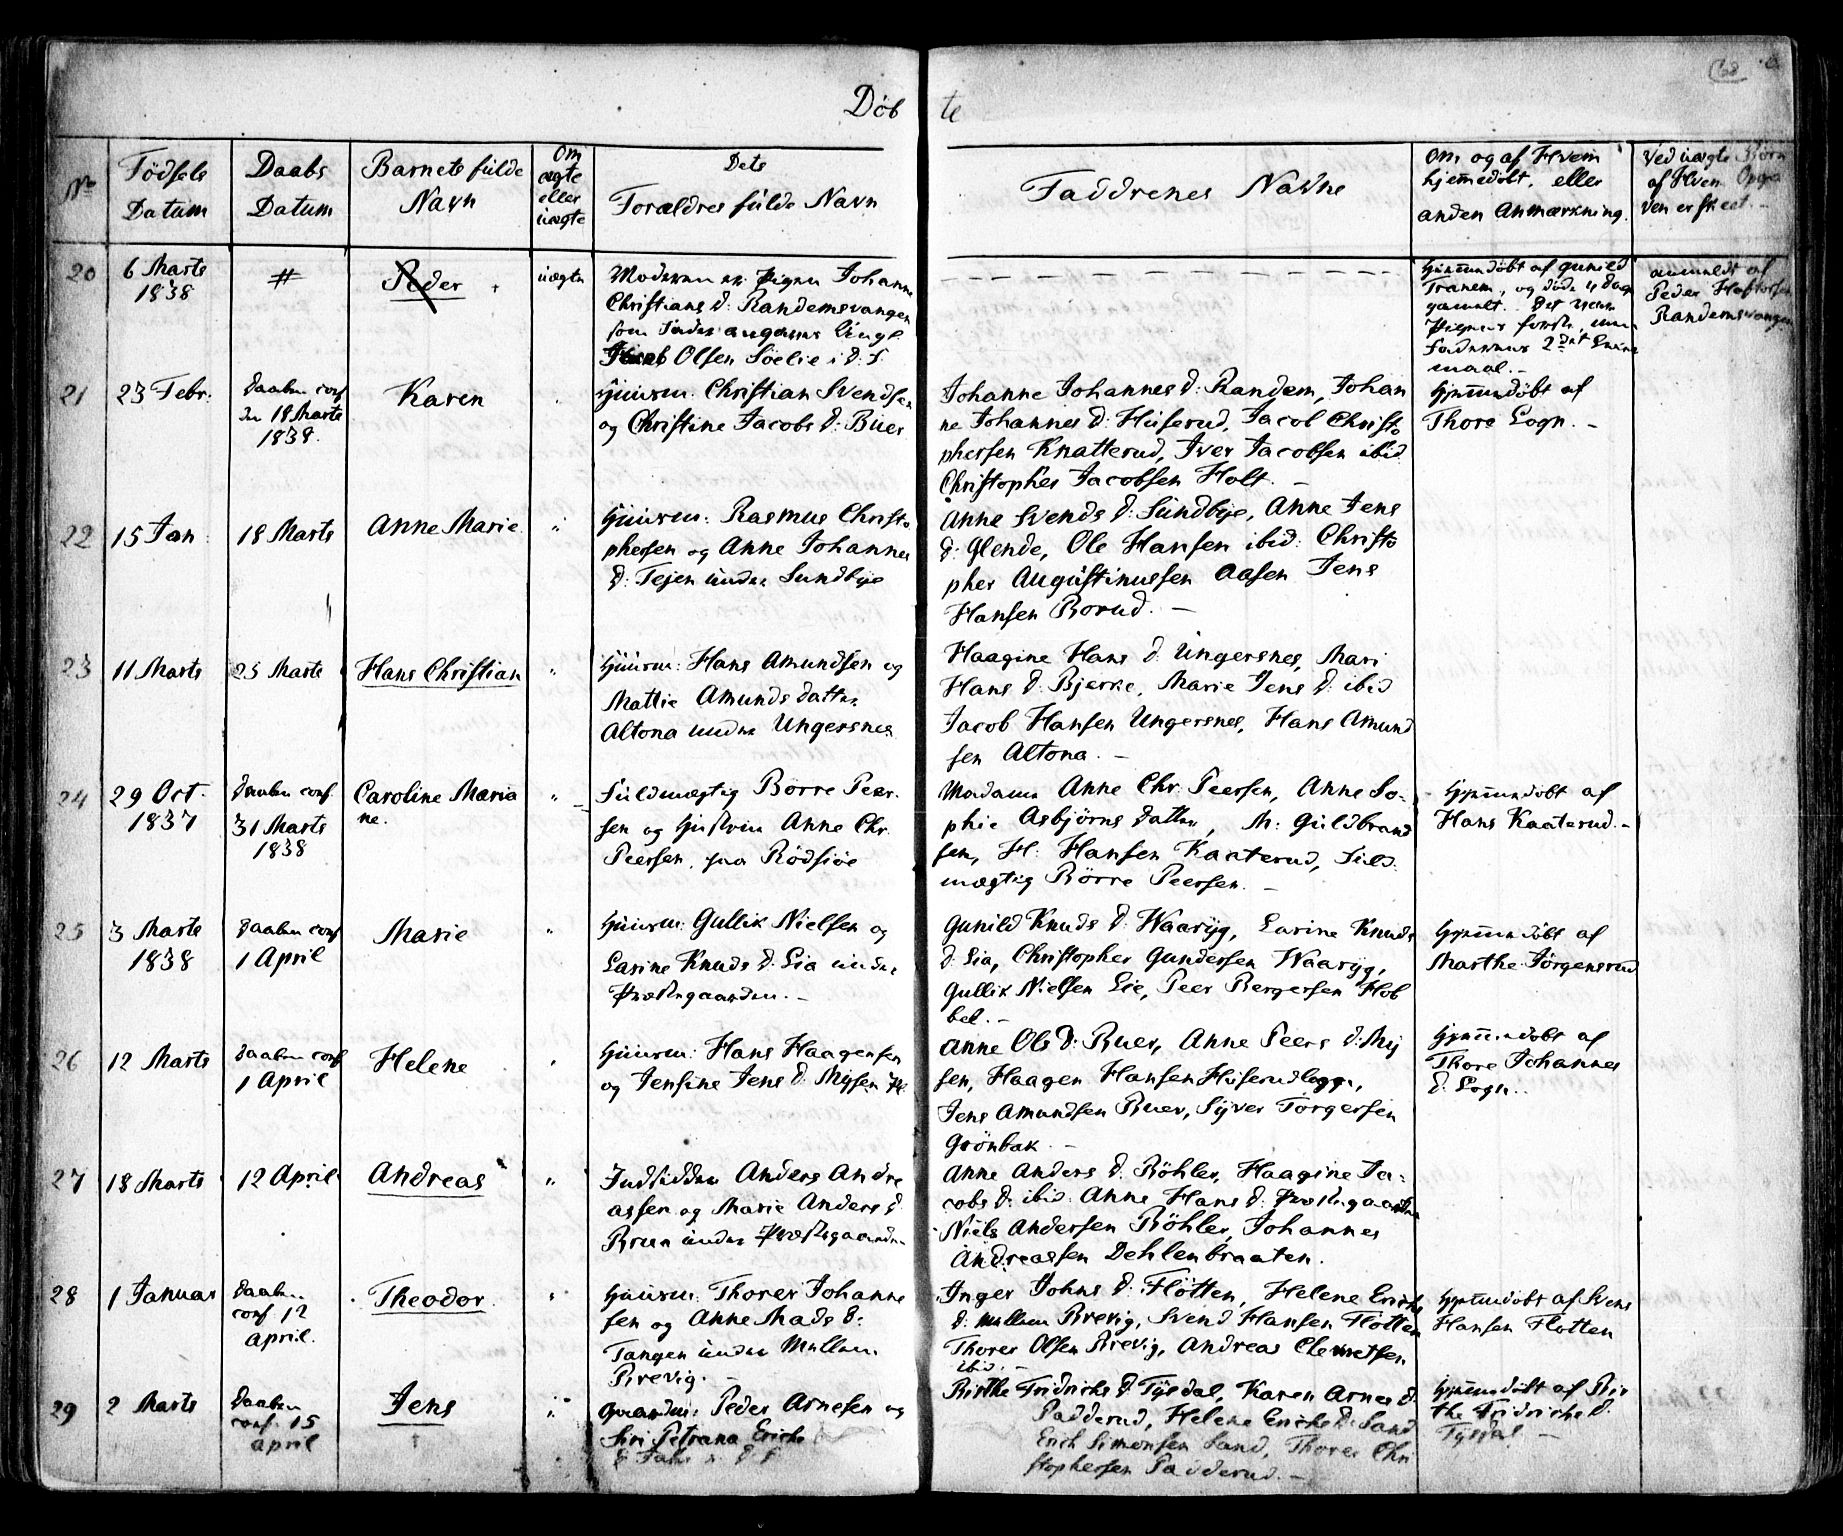 Döbte
68
No
Födsels Datum
Daabs Datum
Barnets fulde Navn
Om ægte eller uægte
Dets Forældres fulde Navn
Faddrenes Navne
Om og af Hvem hjemmedöbt, eller anden Anmærkning.
Ved uægte Börn af Hvem Opgaven er skeet.
20
6 Marts
1838
#
Peder
uægte
Moderen er Pigen Johanne
Christians d: Randemsvangen
som Fader angaves Ungk
Jacob Olsen Söelie i d: S
Hjemmedöbt af Gunild
Tranem, og döde 4 Dage
gammelt. Det var
Pigens förste, men
Faderens 2det Leier
maal.
anmeldt af
Peder
Randemsvangen
21
23 Febr.
Daaben conf
den 18 Marts
1838.
Karen
Huusm: Christian Svendsen
og Christine Jacobs d: Buer
Johanne Johannes d: Randem, Johan
ne Johannes d: Huserud, Jacob Christo
phersen Knatterud, Iver Jacobsen ibid
Christopher Jacobsen Holt. -
Hjemmedöbt af
Thore Sogn. -
22
15 Jan
18 Marts
Anne Marie
"
Huusm: Rasmus Christo
phersen og Anne Johannes
d: Tejen under Sundbye
Anne Svends d: Sundbye, Anne Jens
d: Glende, Ole Hansen ibid: Christo
pher Augustinussen Aasen Jens
Hansen Borud. -
23
11 Marts
25 Marts
Hans Christian
"
Huusm: Hans Amundsen og
Mattie Amunds datter
Altona under Ungersnes
Haagine Hans d: Ungersnes, Mari
Hans d: Bjerke, Marie Jens d: ibid
Jacob Hansen Ungersnes, Hans Amund
sen Altona. -
24
29 Oct.
1837
Daaben conf.
31 Marts
1838
Caroline Maria
ne.
"
Fuldmægtig Börre Peer
sen og Hustrue Anne Chr.
Peersen, paa Rödsiöe
Madam Anne Chr. Peersen, Anne So-
phie Asbjörns datter, M: Guldbrand
sen, H: Hansen Kaaterud, Fuld
mægtig Börre Peersen. -
Hjemmedöbt af
Hans Kaaterud. -
25
3 Marts
1838
Daaben conf
1 April
Marie
"
Huusm: Gullik Nielsen og
Larine Knuds d: Lia under
Præstegaarden. -
Gunild Knuds d: Waaryg, Larine Knuds
d: Lia, Christopher Gundersen Waaryg,
Gullik Nielsen Lie, Peer Bergersen Hob
bel. -
Hjemmedöbt af
Marthe Jörgensrud
26
12 Marts
Daaben conf
1 April
Helene
Huusm: Hans Haagensen
og Jensine Jens d: Mysen
Anne Ols d: Buer, Anne Peers d: My
sen, Haagen Hansen Huserudlegge,
Jens Amundsen Buer, Syver Torgersen
Grönbak. -
Hjemmedöbt af
Thore Johannes
d: Sogn.
27
18 Marts
12 April
Andreas
"
Indsidder Anders Andre
assen og Marie Anders d
Bruen under Præstegaarden
Anne Anders d: Böhler, Haagine Ja-
cobs d: ibid. Anne Hans d: Præstegaarden
Niels Andersen Böhler, Johannes
Andreassen Dehlenbraaten.
28
1 Januar
Daaben
conf 12
April.
Theodor
"
Huusm: Thorer Johanne
sen og Anne Mads d:
Tangen under Mellem
Brevig. -
Inger Johns d: Flötten, Helene Erichs
d: Mellem Brevig, Svend Hansen Flötten
Thorer Olsen Brevig, Andreas Clemetsen
ibid. -
Hjemmedöbt af Svend
Hansen Flotten
29
2 Marts
Daaben
conf. 15
April
Jens
"
Gaardm: Peder Arnesen og
Siri Petrana Erichs
Birthe Fridrichs d: Tysdal, Karen Arnes d:
Padderud, Helene Erichs d: Sand
Erich Simensen Sand, Thorer Chri
stophersen Padderud. -
Hjemmedöbt af Bir
the Fridrichs d:
Tysdal -